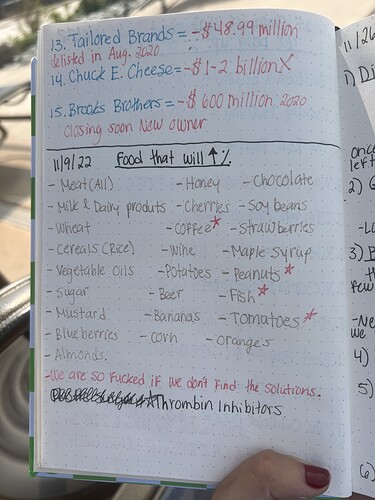 13. Tailored Brands = -$48.99 million
delisted in Aug. 2020
14. Chuck E. Cheese = -$1-2 billion X
15. Brooks Brothers = -$600 million 2020
Closing soon New owner
11/9/22 Food that will ↑ %
- Meat (All) - Honey - Chocolate
- Milk & Dairy produts - Cherries - Soy beans
- Wheat - Coffee* - Strawberries
- Cereals (Rice) - Wine - Maple syrup
- Vegetable Oils - Potatoes - Peanuts *
- Sugar - Beer - Fish *
- Mustard - Bananas - Tomatoes *
- Blueberries - Corn - Orange's
- Almonds.
- We are so fucked if we don't find the solutions.
Thrombin Inhibitors.
11/26
1) Di
once
left
2)
3)
th
few
we
4)
5)
6)